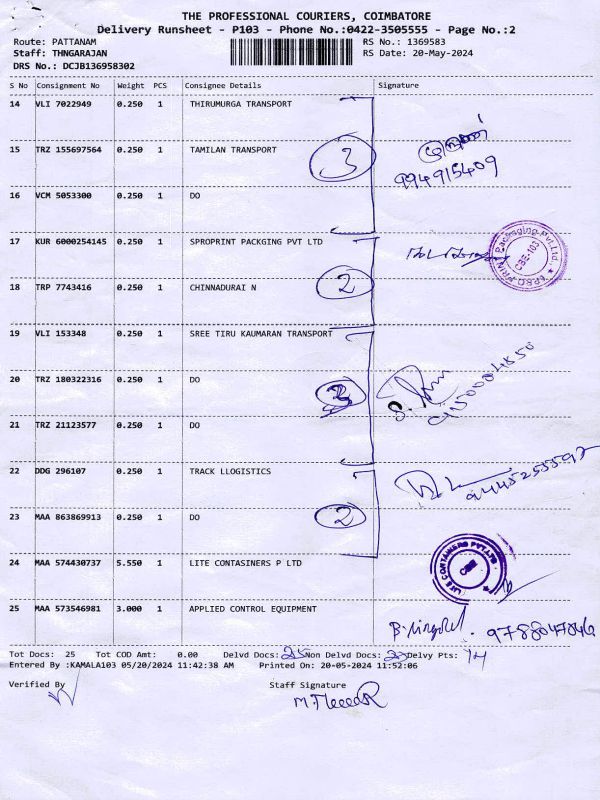 THE PROFESSIONAL COURIERS, COIMBATORE
Delivery Runsheet - P103 - Phone No.:0422-3505555 - Page No.:2
Route: PATTANAM RS No.: 1369583
Staff: THNGARAJAN RS Date: 20-May-2024
DRS No.: DCJB136958302
S No Consignment No Weight PCS Consignee Details Signature
14 VLI 7022949 0.250 1 THIRUMURGA TRANSPORT
15 TRZ 155697564 0.250 1 TAMILAN TRANSPORT 3
994915409
16 VCM 5053300 0.250 1 DO
17 KUR 6000254145 0.250 1 SPROPRINT PACKGING PVT LTD
CBE-103
18 TRP 7743416 0.250 1 CHINNADURAI N 2
19 VLI 153348 0.250 1 SREE TIRU KAUMARAN TRANSPORT
20 TRZ 180322316 0.250 1 DO 3
21 TRZ 21123577 0.250 1 DO
22 DDG 296107 0.250 1 TRACK LLOGISTICS
23 MAA 863869913 0.250 1 DO 2
24 MAA 574430737 5.550 1 LITE CONTASINERS P LTD
LITE CONTAINERS PVT.LTD CBE
25 MAA 573546981 3.000 1 APPLIED CONTROL EQUIPMENT
Tot Docs: 25 Tot COD Amt: 0.00 Delvd Docs: 25 Non Delvd Docs: Delvy Pts: 14
Entered By :KAMALA103 05/20/2024 11:42:38 AM Printed On: 20-05-2024 11:52:06
Verified By Staff Signature